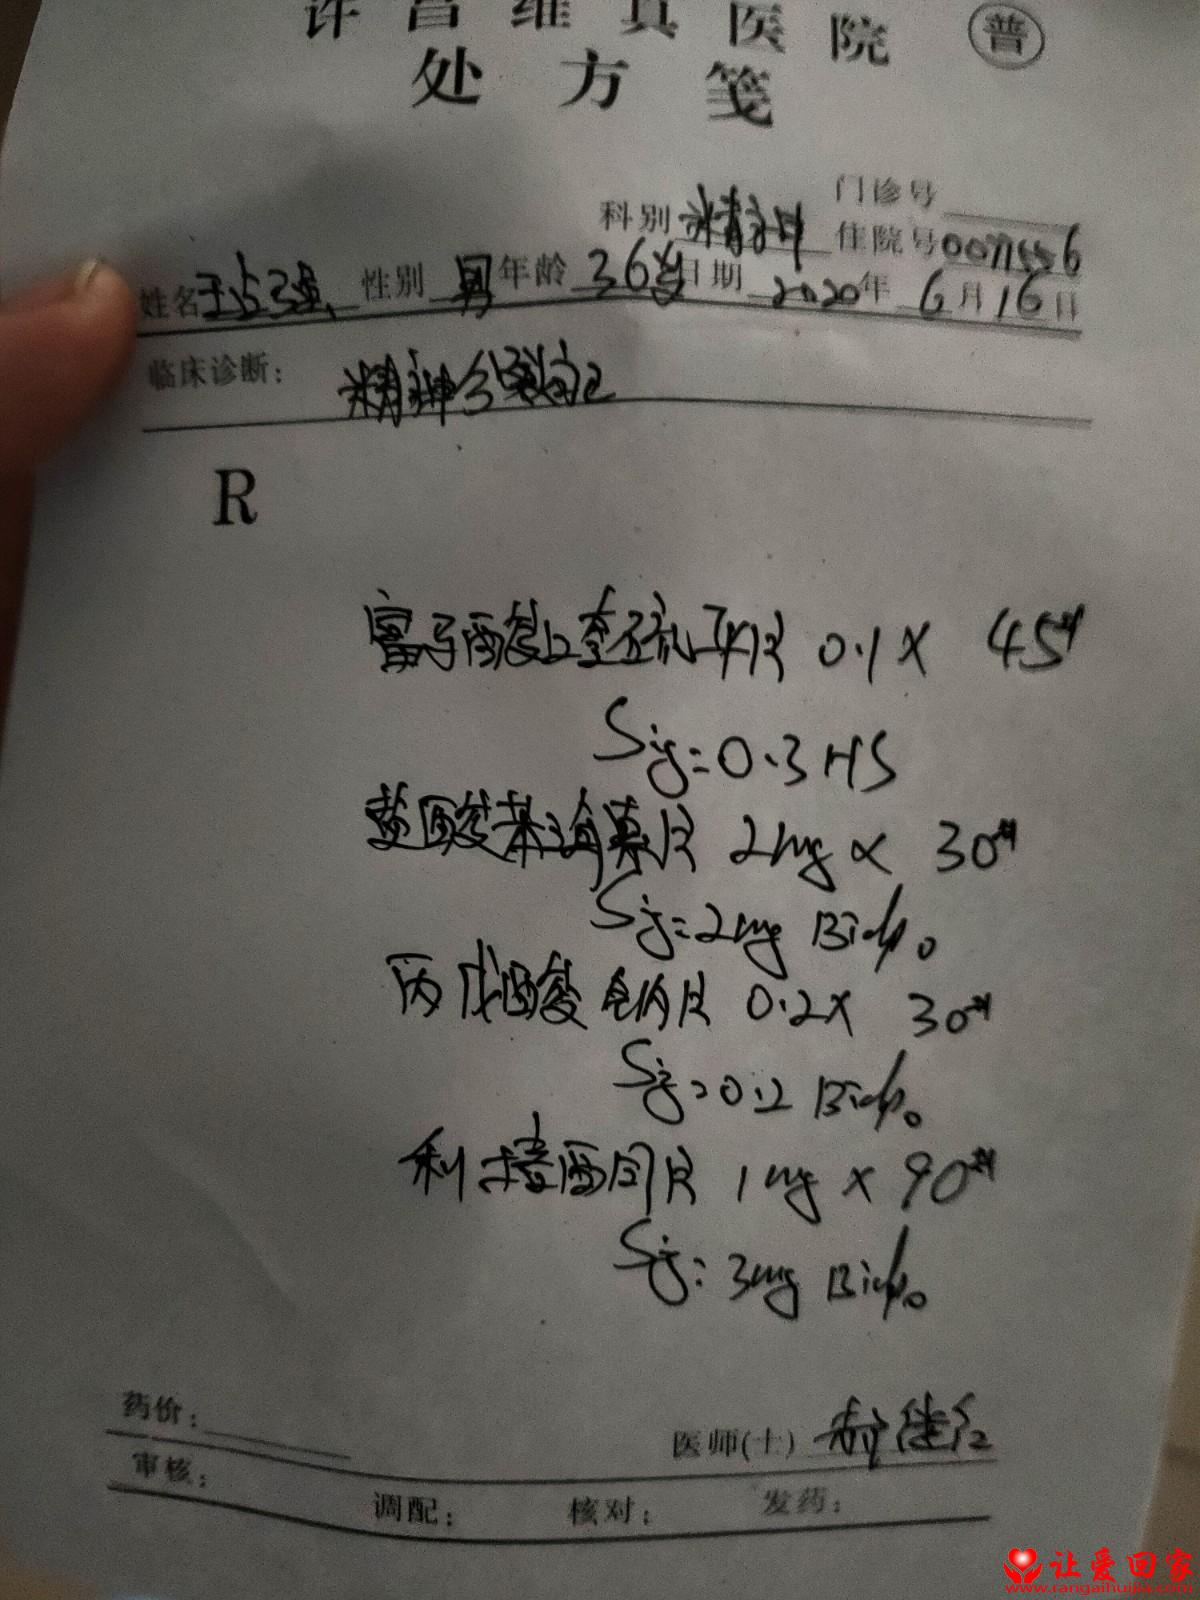 许昌维真医院 普
处方笺
科别 精神 门诊号
住院号
姓名 性别 男 年龄 36岁 日期 2020年 6月16日
临床诊断: 精神分裂症
R
富马酸喹硫平片 0.1 X 45片
Sig: 0.3 HS
盐酸苯海索片 2mg X 30片
Sig: 2mg Bid po
丙戊酸钠片 0.2 X 30片
Sig: 0.2 Bid po
利培酮片 1mg X 90片
Sig: 3mg Bid po
药价:
医师(士)
审核:
调配: 核对: 发药:
让爱回家
www.rangaihuijia.com